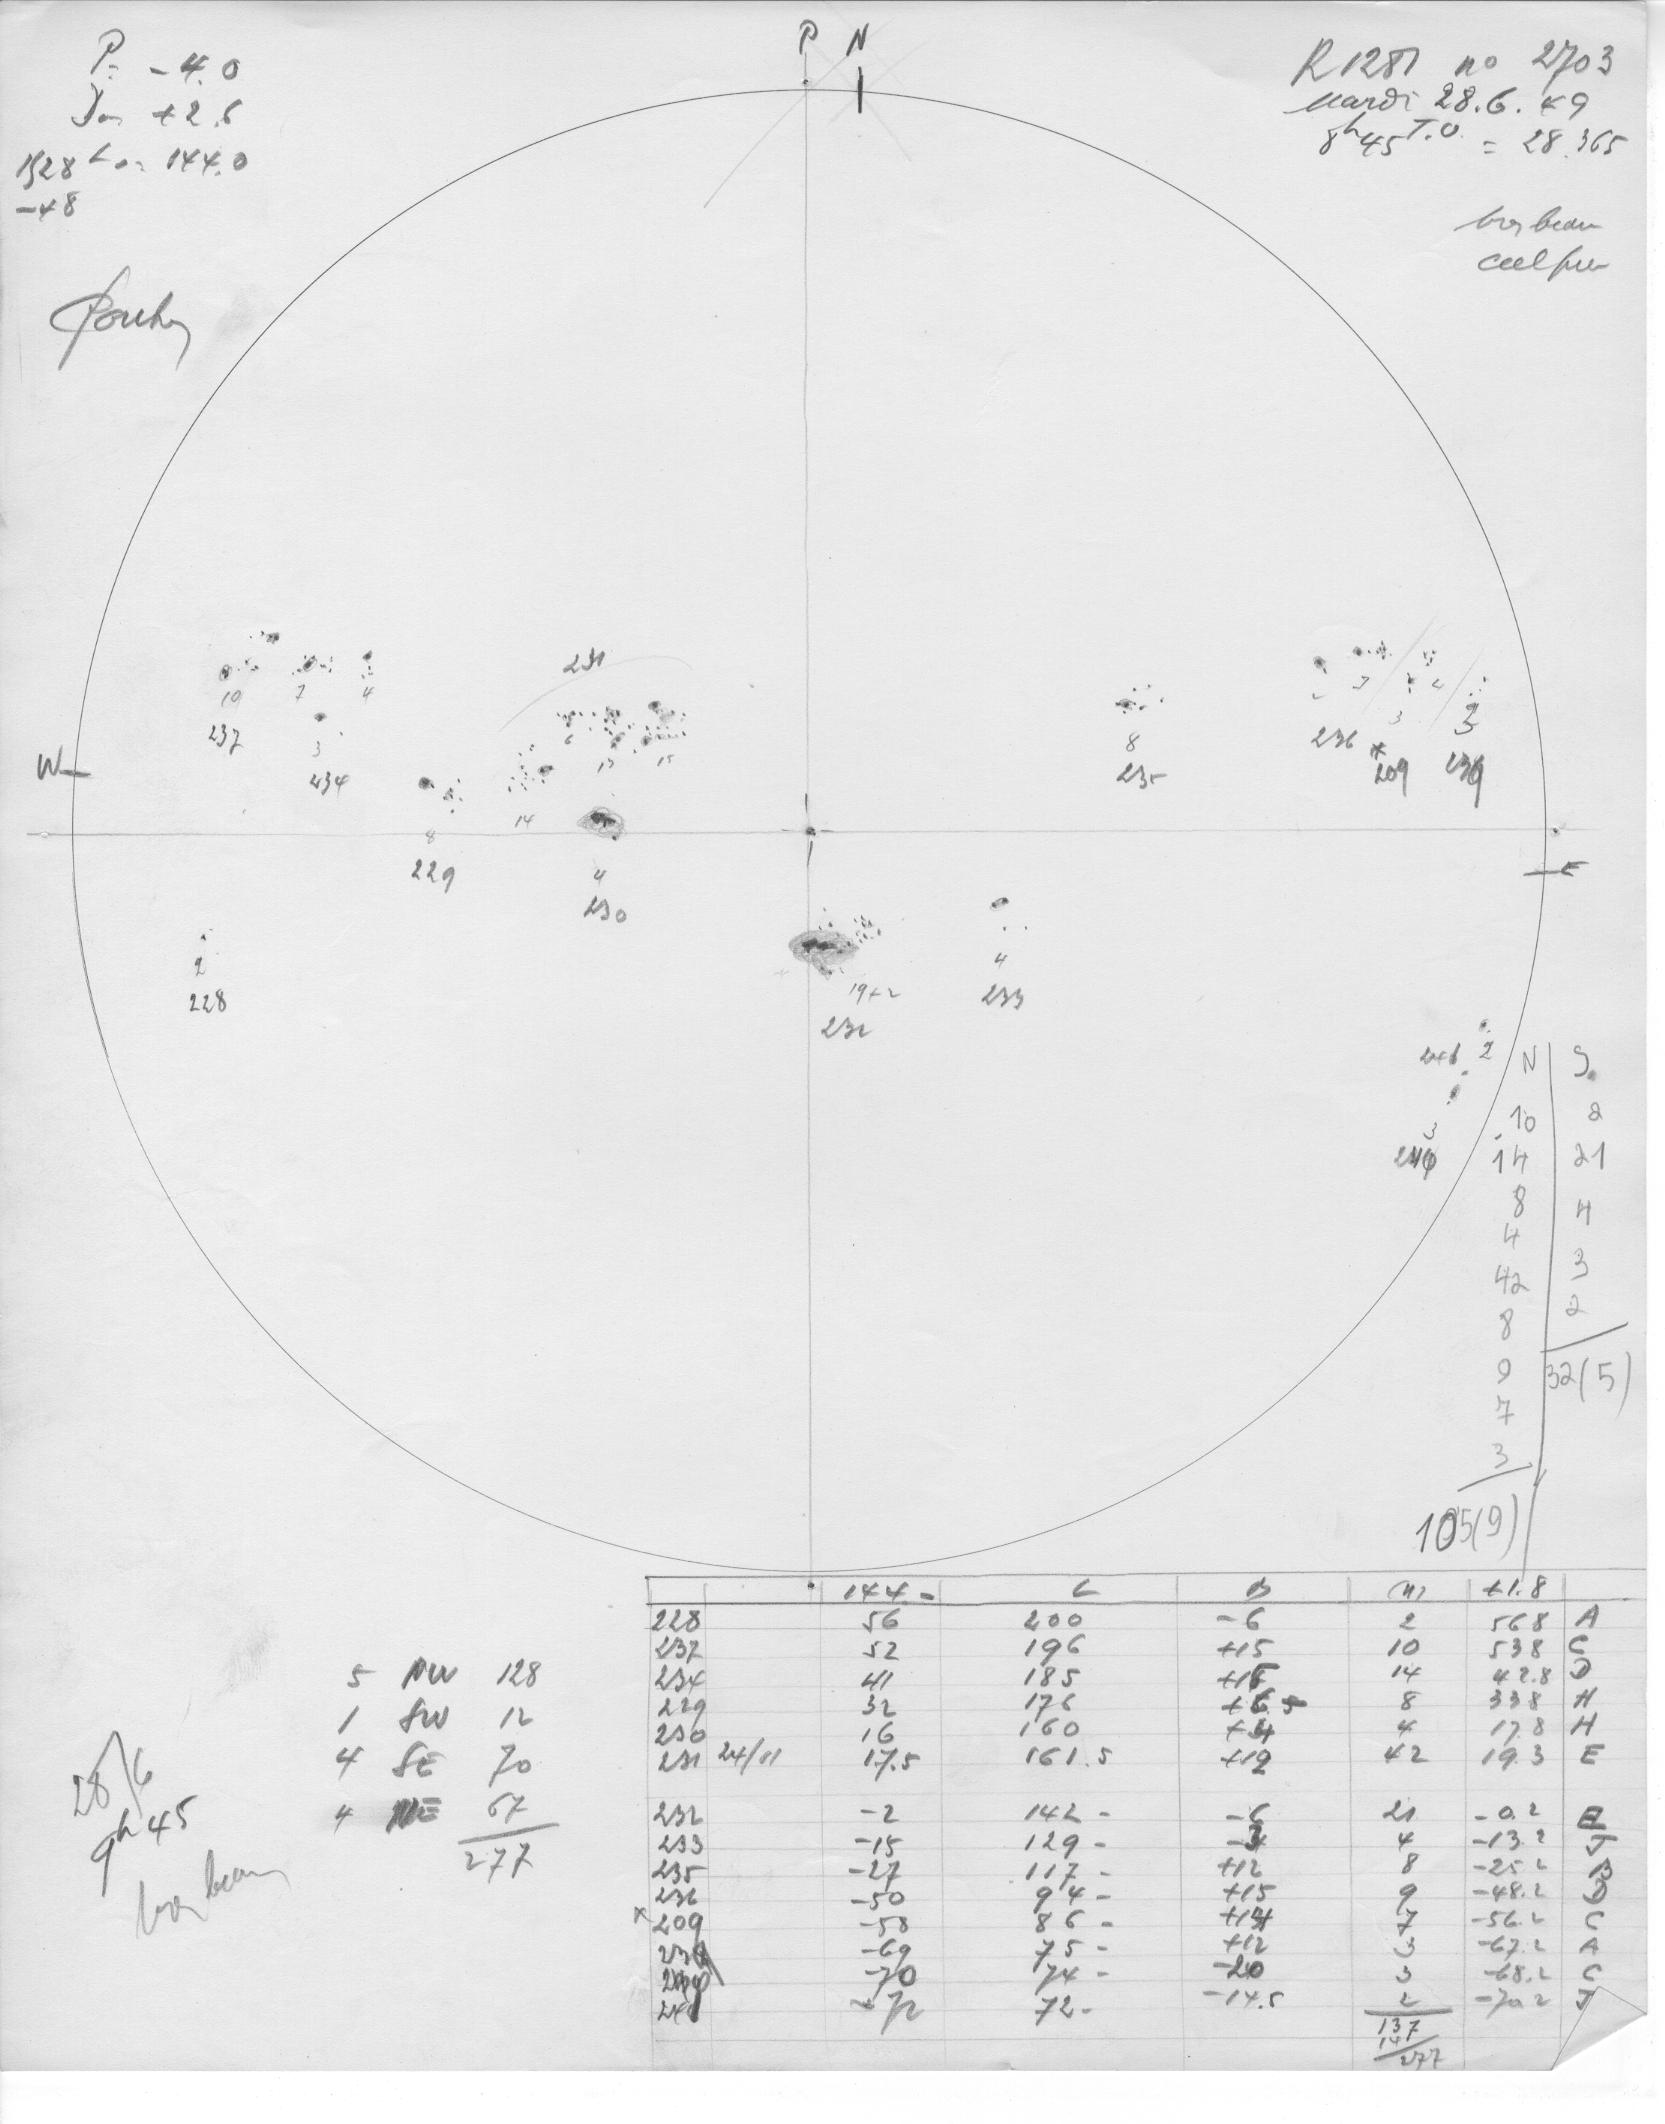 P N
P= -4.0
+2.6
1528 Lo= 144.0
-48
R1281 no 2703
Mardi 28.6.49
8h45 T.U. = 28.365
W
E
231
10 7 4
237
3
234
6 13 15
8
229
14
4
230
2
228
19+2
232
4
233
8
235
236
3
*
209
3
2
3
N S.
10 2
14 21
8 4
4 3
42 2
8 32(5)
9
7
3
105(9)
5 NW 128
1 SW 12
4 SE 70
4 NE 67
277
28/6
9h45
144.- L B (n) +1.8
228 56 200 -6 2 568 A
237 52 196 +15 10 538 C
234 41 185 14 42.8 D
229 32 176 +6.5 8 338 H
230 16 160 +4 4 17.8 H
231 24/11 17.5 161.5 +12 42 19.3 E
232 -2 142- -6 21 -0.2 E
233 -15 129- 4 -13.2 J
235 -27 117- +12 8 -25.2 B
236 -50 94- +15 9 -48.2 D
x 209 -58 86- +14 7 -56.2 C
-69 75- +12 3 -67.2 A
-70 74- -20 3 -68.2 C
241 -72 72- -14.5 2 -70.2 J
137
14
277